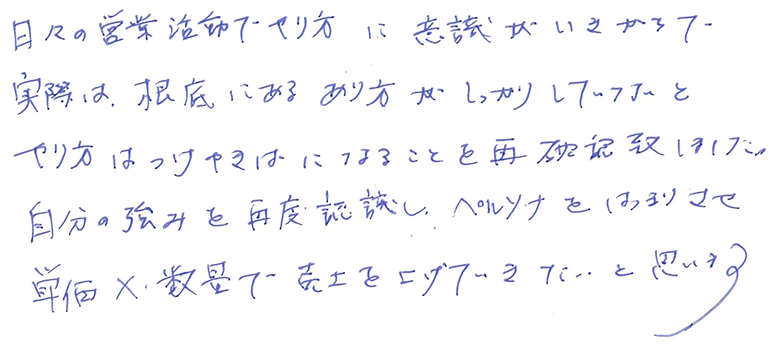 日々の営業活動でやり方に意識がいきがちで
実際は、根底にあるあり方がしっかりしていないと
やり方はつけやきばになることを再確認致しました。
自分の強みを再度認識し、ペルソナをはっきりさせ
単価×数量で売上を上げていきたいと思います